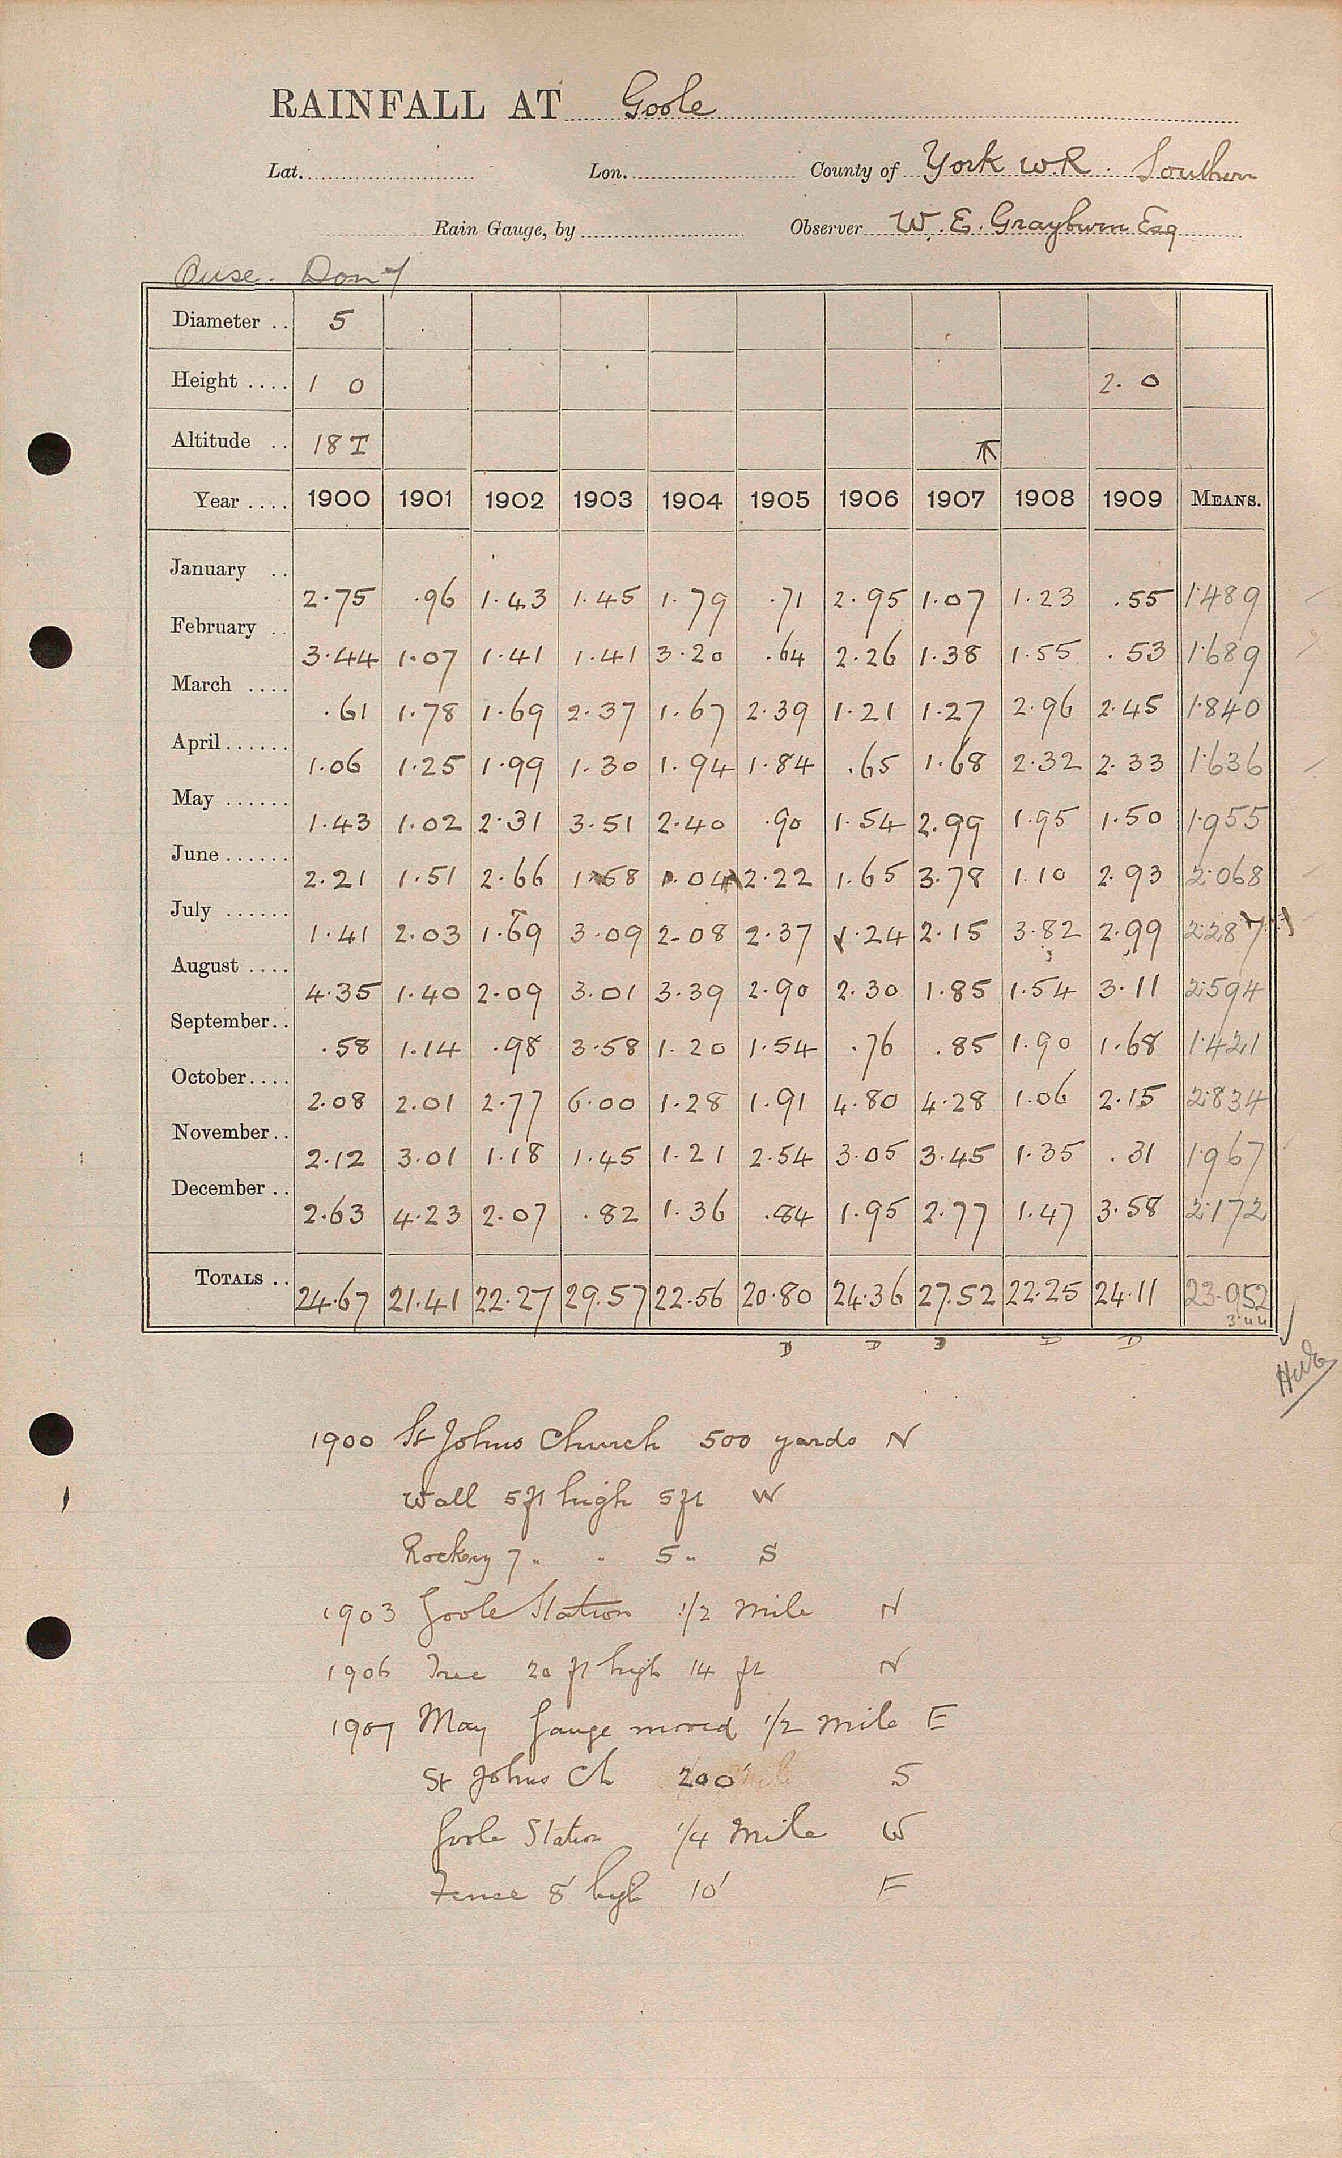 RAINFALL AT Goole
Lat. Lon. County of York W.R. Southern
Rain Gauge, by Observer W. E. Grayburn Esq
Ouse. Don
Diameter .. 5
Height .... 1 0 2. 0
Altitude .. 18 T
Year .... 1900 1901 1902 1903 1904 1905 1906 1907 1908 1909 MEANS.
January .. 2.75 .96 1.43 1.45 1.79 .71 2.95 1.07 1.23 .55 1.489
February .. 3.44 1.07 1.41 1.41 3.20 .64 2.26 1.38 1.55 .53 1.689
March .... .61 1.78 1.69 2.37 1.67 2.39 1.21 1.27 2.96 2.45 1.840
April ...... 1.06 1.25 1.99 1.30 1.94 1.84 .65 1.68 2.32 2.33 1.636
May ...... 1.43 1.02 2.31 3.51 2.40 .90 1.54 2.99 1.95 1.50 1.955
June ...... 2.21 1.51 2.66 1.58 1.04 2.22 1.65 3.78 1.10 2.93 2.068
July ...... 1.41 2.03 1.69 3.09 2.08 2.37 1.24 2.15 3.82 2.99 2.287
August .... 4.35 1.40 2.09 3.01 3.39 2.90 2.30 1.85 1.54 3.11 2.594
September .. .58 1.14 .98 3.58 1.20 1.54 .76 .85 1.90 1.68 1.421
October .... 2.08 2.01 2.77 6.00 1.28 1.91 4.80 4.28 1.06 2.15 2.834
November .. 2.12 3.01 1.18 1.45 1.21 2.54 3.05 3.45 1.35 .31 1.967
December .. 2.63 4.23 2.07 .82 1.36 .84 1.95 2.77 1.47 3.58 2.172
TOTALS .. 24.67 21.41 22.27 29.57 22.56 20.80 24.36 27.52 22.25 24.11 23.952
D D D D D
1900 St Johns Church 500 yards N
Wall 5ft high 5ft W
Rockery 7 " " 5 " S
1903 Goole Station 1/2 mile N
1906 Tree 20 ft high 14 ft N
1907 May Gauge moved 1/2 mile E
St Johns Ch 200' S
Goole Station 1/4 mile W
Fence 8' high 10' E